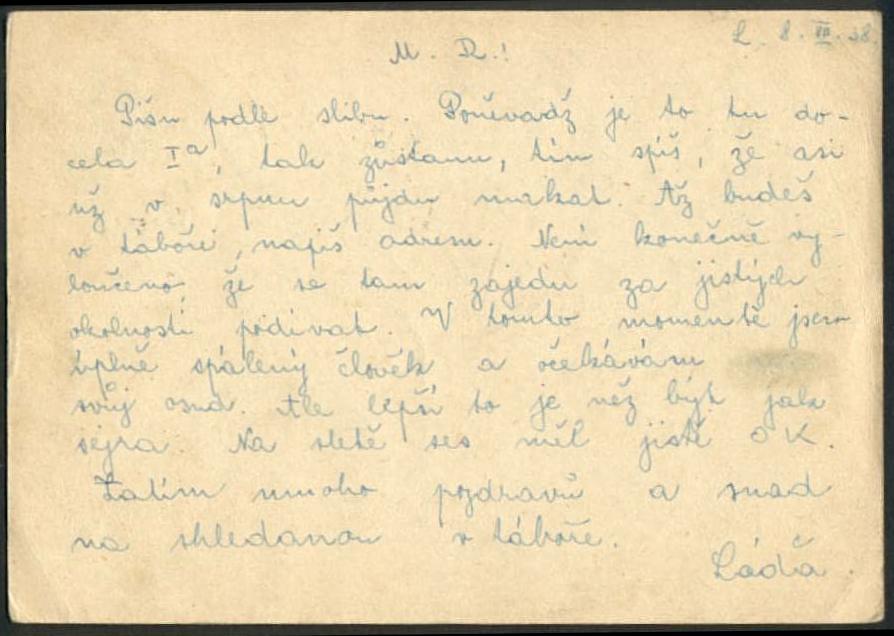 L. 8. VII. 38.
M. D.!
Píšu podle slibu. Poněvadž je to tu do-
cela Ia, tak zůstanu, tím spíš, že asi
už v srpnu půjdu makat. Až budeš
v táboře, napiš adresu. Není konečně vy-
loučeno, že se tam zajedu za jistých
okolností podívat. V tomto momentě jsem
úplně spálený člověk a očekávám
svůj osud. Ale lepší to je než být jak
sejra. Na sletě ses měl jistě OK.
Zatím mnoho pozdravů a snad
na shledanou v táboře.
Láďa.